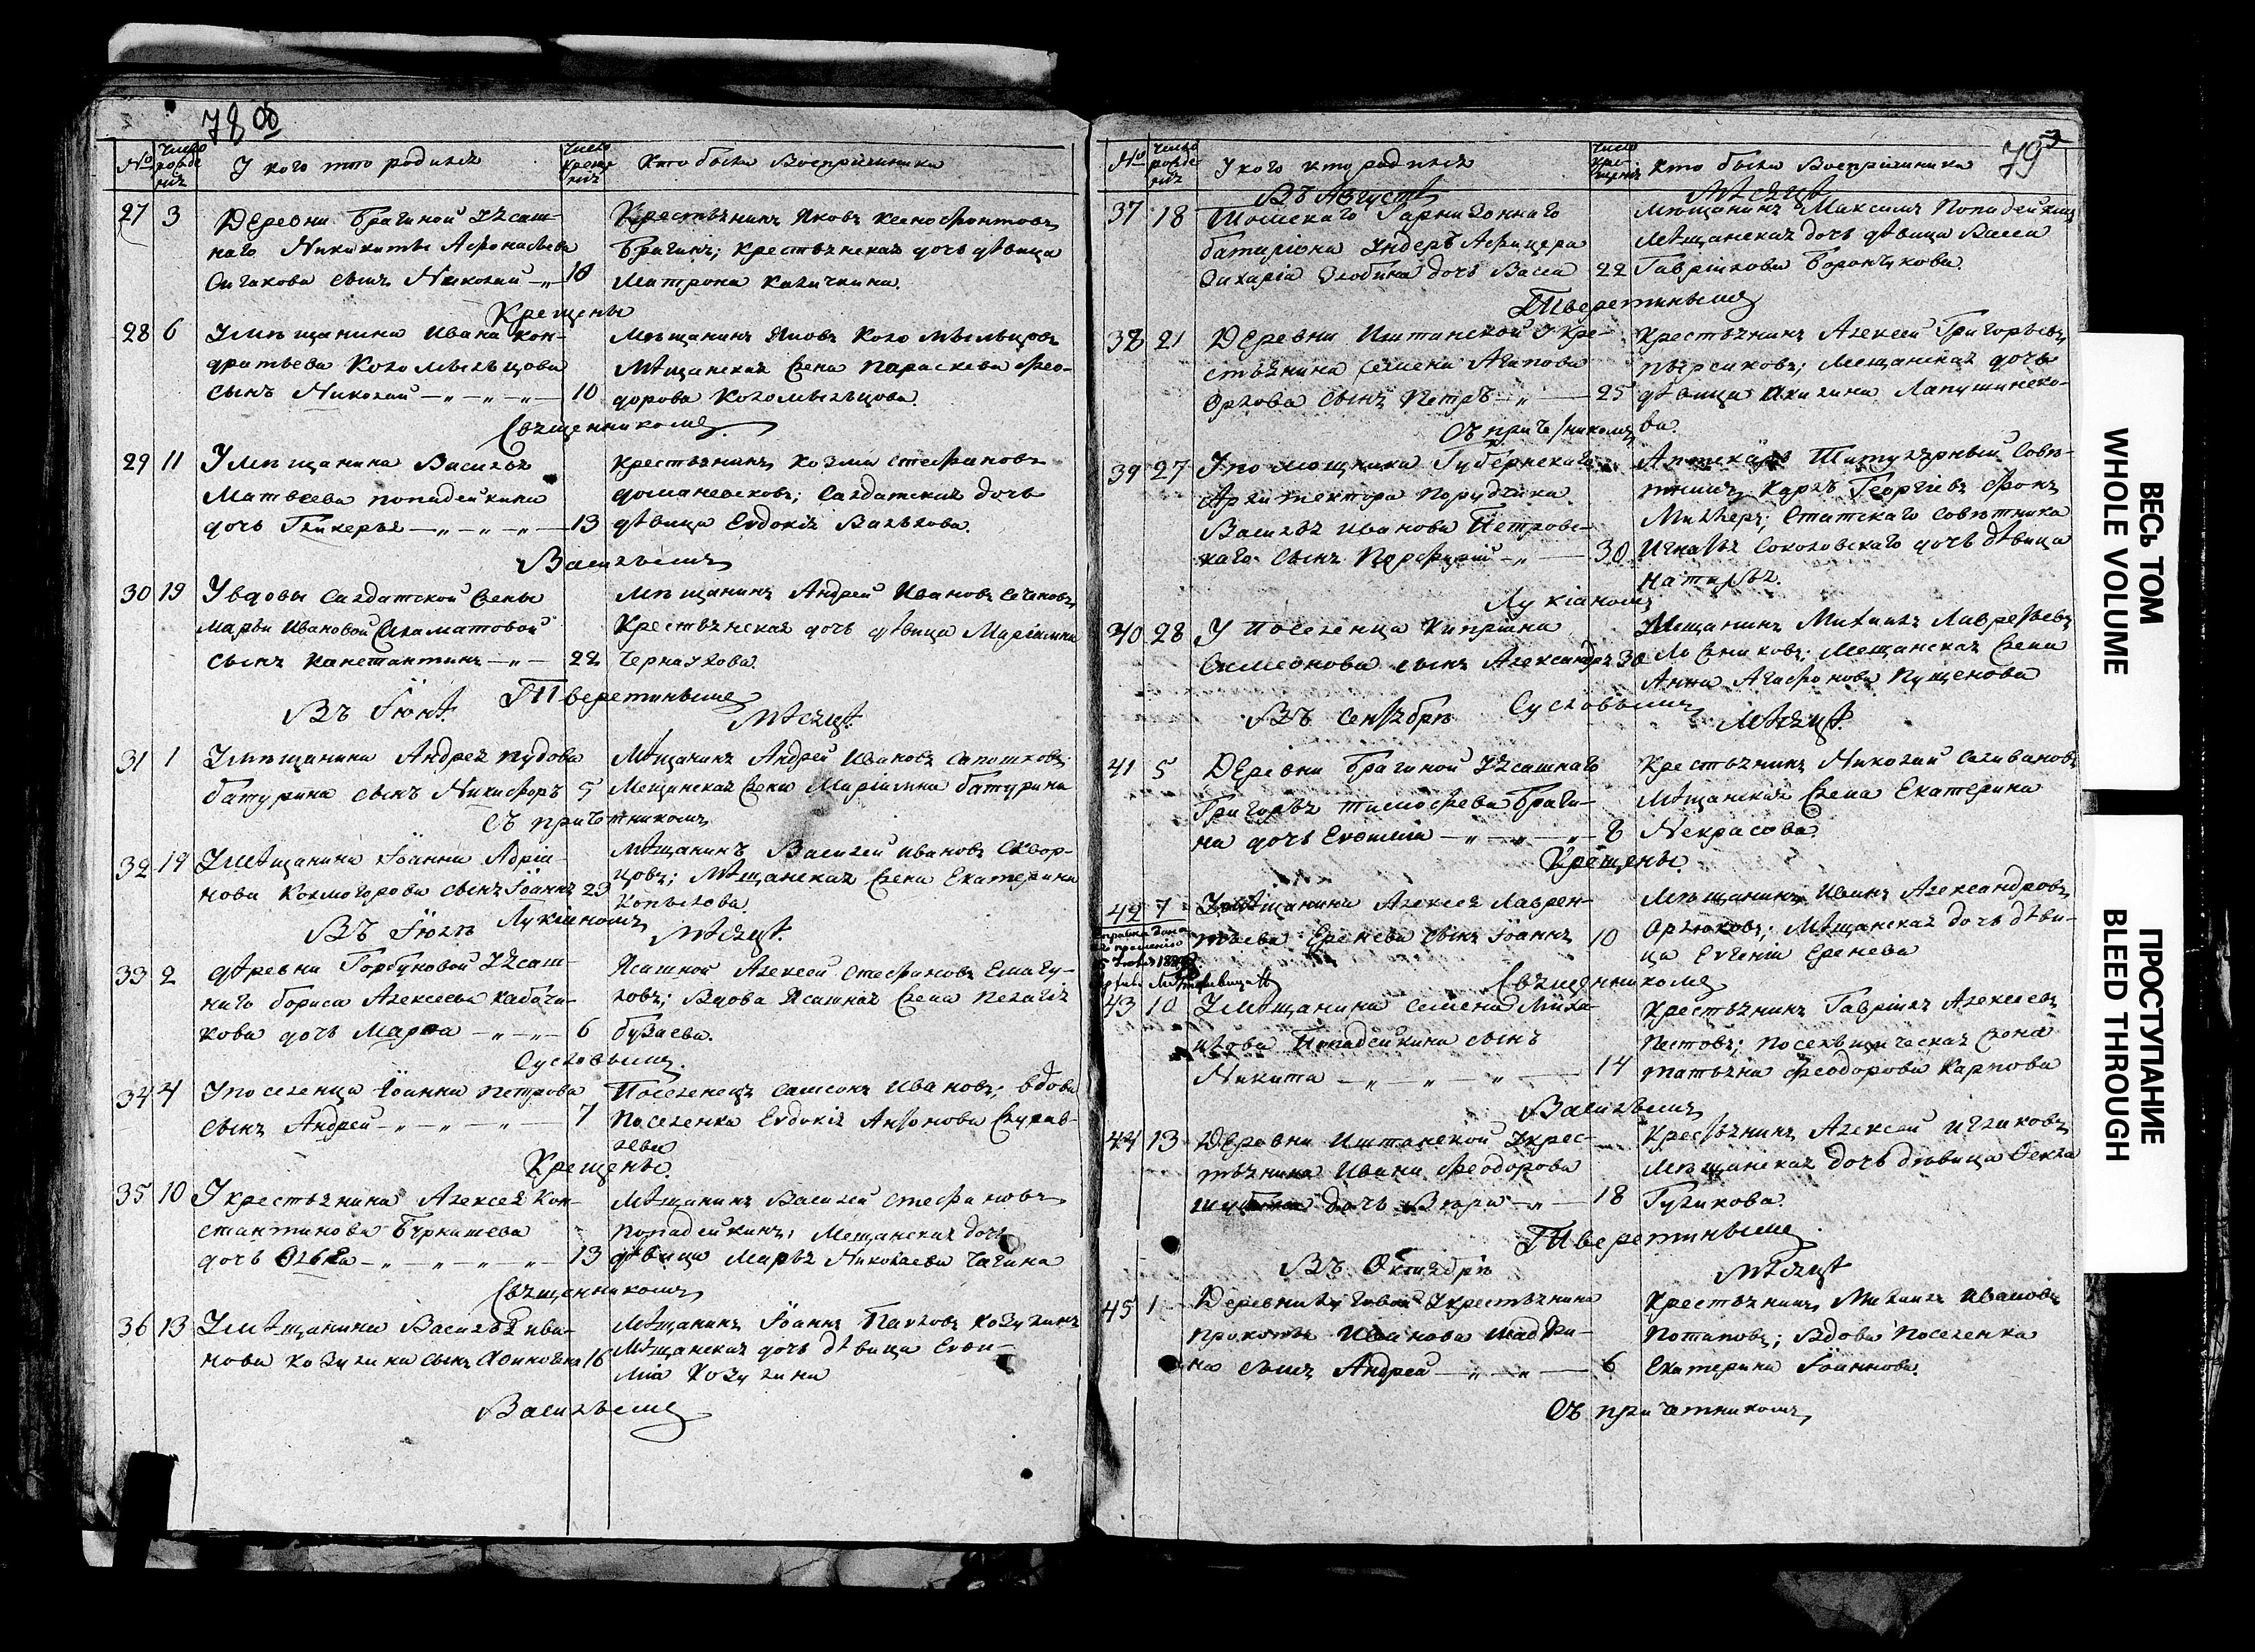 78 об
№
Число рожде нія
У кого кто родился
Число креще нія
Кто были Восприемники
27 3 Деревни Брагиной Ясаш-
наго Никикиты Афонасьева
сынъ Николай 10
Крестьянинъ Яковъ Ксенофонтовъ
Брагинъ; крестьянская дочь дѣвица
Матрона Каличкина.
Крещены
28 6 У мѣщанина Ивана Кон-
дратьева Коломыльцова
сынъ Николай 10
Мѣщанинъ Яковъ Коломыльцовъ
Мѣщанская жена Параскева Фео-
дорова Коломыльцова.
Священникомъ
29 11 У мѣщанина Василья
Матвеева Попадейкина
дочь Гликерья 13
Крестьянинъ Козма Стефановъ
Салдатская дочь
дѣвица Евдокія Валькова.
Васильемъ
30 19 У вдовы салдатской жены
Марьи Ивановой
сынъ Константинъ 22
Мѣщанинъ Андрей Ивановъ
Крестьянская дочь дѣвица Маріамна
Черкаухова.
Тверетинымъ
Въ Іюнѣ Мѣсяцѣ.
31 1 У мѣщанина Андрея Пудова
Батурина сынъ Никифоръ 5
Мѣщанинъ Андрей Ивановъ Сапожковъ
Мещанская жена Маріамна Батурина
Съ причетникомъ
32 19 У мѣщанина Іоанна Адріа-
нова Колмогорова сынъ Іоаннъ 23
Мѣщанинъ Василей Ивановъ Сквор-
цовъ; Мѣщанская жена Екатерина
Копылова.
Лукіаномъ
Въ Іюлѣ Мѣсяцѣ.
33 2 деревни Горбуновой Ясаш-
наго Бориса Алексеева Кабачи-
кова дочь Марѳа 6
Ясашной Алексей Стефановъ
Вдова Ясашная жена Пелагія
Бузаева.
Сусловымъ.
34 4 У поселенца Іоанна Петрова
сынъ Андрей 7
Поселенецъ Самсонъ Ивановъ; вдова
Поселенка Евдокія Антонова Журав-
лева
Крещены
35 10 У крестьянина Алексея Кон-
стантинова Бурнашева
дочь Ольга 13
Мѣщанинъ Василей Стефановъ
Попадейкинъ; Мещанская дочь
дѣвица Марья Николаева Чагина
Священникомъ
36 13 У мѣщанина Василья Ива-
нова Козулина сынъ 16
Мѣщанинъ Іоаннъ Павловъ Козулинъ
Мѣщанская дочь дѣвица Евѳи-
мія Козулина
Васильемъ
79
№
Число рожде нія
У кого кто родился
Число кре- щенія
Кто были Восприемники
Въ Августѣ Мѣсяцѣ
37 18 Томскаго Гарнизоннаго
баталіона Ундеръ Афицера
Захаріа Злобина дочь Васса 22
Мѣщанинъ Максимъ Попадейкинъ
Мѣщанская дочь дѣвица Васса
Гаврилова Воронцкова.
Тверетинымъ
38 21 Деревни Иштанской У кре-
стьянина Семена Агапова
Орлова сынъ Петръ 25
Крестьянинъ Алексей Григорьевъ
Пырсиковъ; Мещанская дочь
дѣвица Акилина Лапушинско-
ва.
Съ причетникомъ
39 27 У помощника Губернскаго
Архитектора Порудчика
Василья Иванова Петровс-
каго сынъ Порфирій 30
Аптекарь Титулярный Совѣ-
тникъ Карлъ Георгіевъ Фонъ
Миллеръ; Статскаго Совѣтника
Игнатья Соколовскаго дочь дѣвица
Наталья.
Лукіаномъ
40 28 У поселенца Кипріана
Симеонова сынъ Александръ 30
Мещанинъ Михаилъ Лаврентьевъ
Ложниковъ; Мещанская жена
Анна Агафонова Пущенова
Сусловымъ
Въ Сентябрѣ Мѣсяцѣ.
41 5 Деревни Брагиной Ясашнаго
Григорья Тимофеева Браги-
на дочь Евѳимія 8
Крестьянинъ Николай Селивановъ
Мѣщанская жена Екатерина
Некрасова.
Крещены.
42 7 У мѣщанина Алексея Лаврен-
тьева Еренева сынъ Іоаннъ 10
Мѣщанинъ Иванъ Александровъ
Орлюковъ; Мѣщанская дочь дѣви-
ца Евгенія Еренева
Священникомъ
43 10 У мѣщанина Семена Миха-
илова Попадейкина сынъ
Никита 14
Крестьянинъ Гавріилъ Алексеевъ
Пестовъ; Поселыцическая жена
Татьяна Феодорова Карпова
Васильемъ
44 13 Деревни Иштанской У крес-
тьянина Ивана Феодорова
дочь 18
Крестьянинъ Алексей
Мѣщанская дочь дѣвица Ѳекла
Гуликова.
Тверетинымъ.
Въ Октябрѣ Мѣсяцѣ
45 1 Деревни У крестьянина
Прокопья Иванова
на сынъ Андрей 6
Крестьянинъ Михаилъ Ивановъ
Потаповъ; Вдова Поселенка
Екатерина Іоаннова.
Съ причетникомъ
ВЕСЬ ТОМ
WHOLE VOLUME
ПРОСТУПАНИЕ
BLEED THROUGH